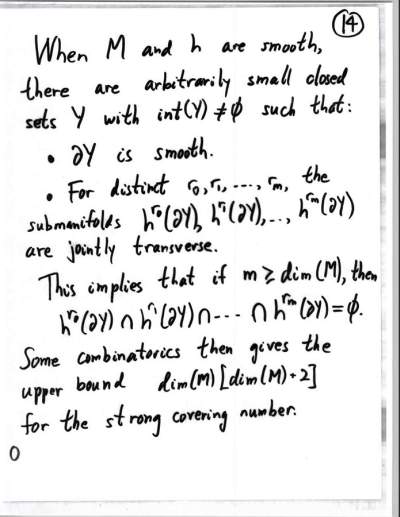 14
When M and h are smooth,
there are arbitrarily small closed
sets Y with int(Y) ≠ ∅ such that:
• ∂Y is smooth.
• For distinct r₀, r₁, ..., rₘ, the
submanifolds h^{r₀}(∂Y), h^{r₁}(∂Y), ..., h^{rₘ}(∂Y)
are jointly transverse.
This implies that if m ≥ dim(M), then
h^{r₀}(∂Y) ∩ h^{r₁}(∂Y) ∩ ··· ∩ h^{rₘ}(∂Y) = ∅.
Some combinatorics then gives the
upper bound dim(M)[dim(M)+2]
for the strong covering number.
0